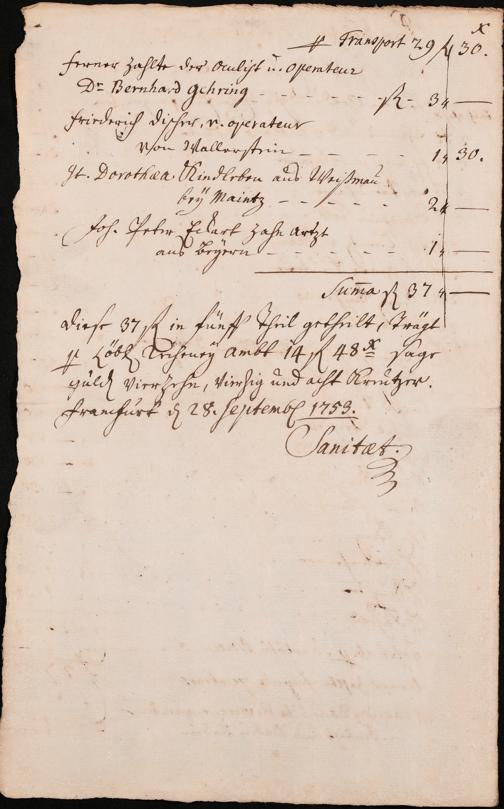 x
p Transport 29 f 30.
ferner zahlte der Oculist u. Operateur
Dr Bernhard Gehring - - - - - f - 3 " —
Friederich Discher, v. operateur
von Wallerstein - - - - - 1 " 30.
Jf. Dorothæa Kindleben aus Weißmau
bey Maintz - - - - - 2 " —
Joh. Peter Eckart Zahn Artzt
aus Beyern - - - - - 1 " —
Suma f 37 " —
Diese 37 f in fünff Theil getheilt, trägt
p Löbl. Recheney Ambt 14 f 48 x sage
güld. Vierzehn, Vierzig und acht Kreutzer.
Franckfurt d 28. Septemb 1753.
Sanitæt.